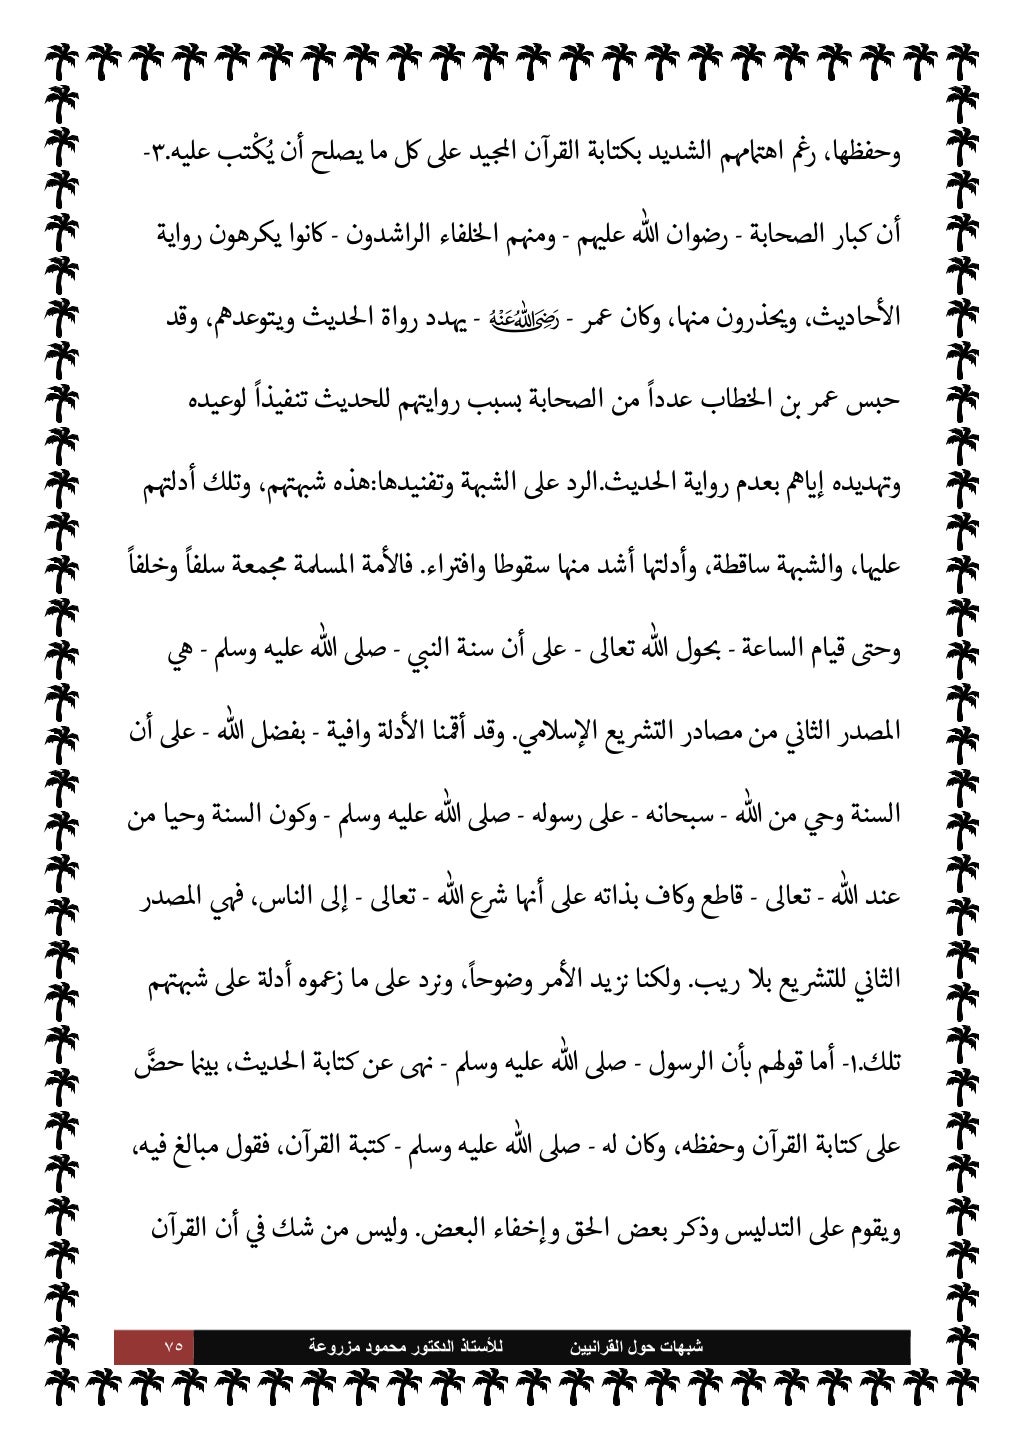 وحفظها، رغم اهتمامهم الشديد بكتابة القرآن المجيد على كل ما يصلح أن يُكْتب عليه.٣-
أن كبار الصحابة - رضوان الله عليهم - ومنهم الخلفاء الراشدون - كانوا يكرهون رواية
الأحاديث، ويحذرون منها، وكان عمر - رَضِيَ اللَّهُ عَنْهُ - يهدد رواة الحديث ويتوعدهم، وقد
حبس عمر بن الخطاب عدداً من الصحابة بسبب روايتهم للحديث تنفيذاً لوعيده
وتهديده إياهم بعدم رواية الحديث.الرد على الشبهة وتفنيدها:هذه شبهتهم، وتلك أدلتهم
عليها، والشبهة ساقطة، وأدلتها أشد منها سقوطا وافتراء. فالأمة المسلمة مجمعة سلفاً وخلفاً
وحتى قيام الساعة - بحول الله تعالى - على أن سنة النبي - صلى الله عليه وسلم - هي
المصدر الثاني من مصادر التشريع الإسلامي. وقد أقمنا الأدلة وافية - بفضل الله - على أن
السنة وحي من الله - سبحانه - على رسوله - صلى الله عليه وسلم - وكون السنة وحيا من
عند الله - تعالى - قاطع وكاف بذاته على أنها شرع الله - تعالى - إلى الناس، فهي المصدر
الثاني للتشريع بلا ريب. ولكنا نزيد الأمر وضوحاً، ونرد على ما زعموه أدلة على شبهتهم
تلك.١- أما قولهم بأن الرسول - صلى الله عليه وسلم - نهى عن كتابة الحديث، بينما حضَّ
على كتابة القرآن وحفظه، وكان له - صلى الله عليه وسلم - كتبة القرآن، فقول مبالغ فيه،
ويقوم على التدليس وذكر بعض الحق وإخفاء البعض. وليس من شك في أن القرآن
شبهات حول القرانيين للأستاذ الدكتور محمود مزروعة ٧٥